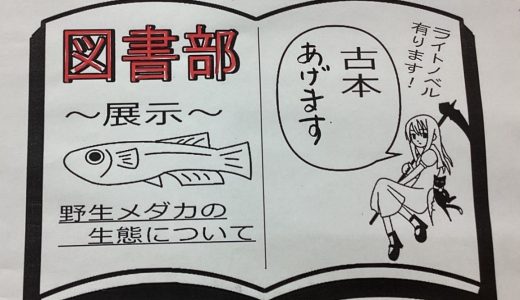 図書部
～展示～
野生メダカの
生態について
ライトノベル
有ります!
古本
あげます